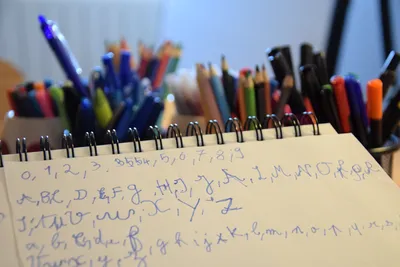 0, 1, 2, 3, 5554, 5, 6, 7, 8, 9
A, B, C, D, E, F, G, H, I, J, K, L, M, N, O, P, Q, R
S, T, U, V, W, X, Y, Z
a, b, c, d, e, f, g, h, i, j, k, l, m, n, o, p, q, r, s,